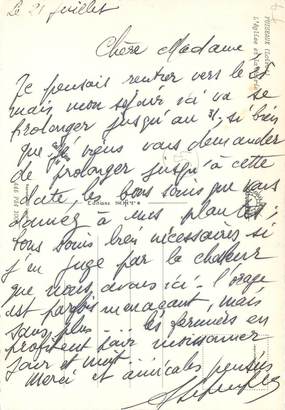 le 21 juillet
Chère Madame
Je pensais rentrer vers le 25
mais mon séjour ici va se
prolonger jusqu'au 31, si bien
que je viens vous demander
de prolonger jusqu'à cette
date, les bons soins que vous
donnez à mes plantes ;
tous soins bien nécessaires si
j'en juge par la chaleur
que nous avons ici - l'orage
est parfois menaçant, mais
sans plus ... les fermiers en
profitent pour moissonner
jour et nuit...
Merci et amicales pensées